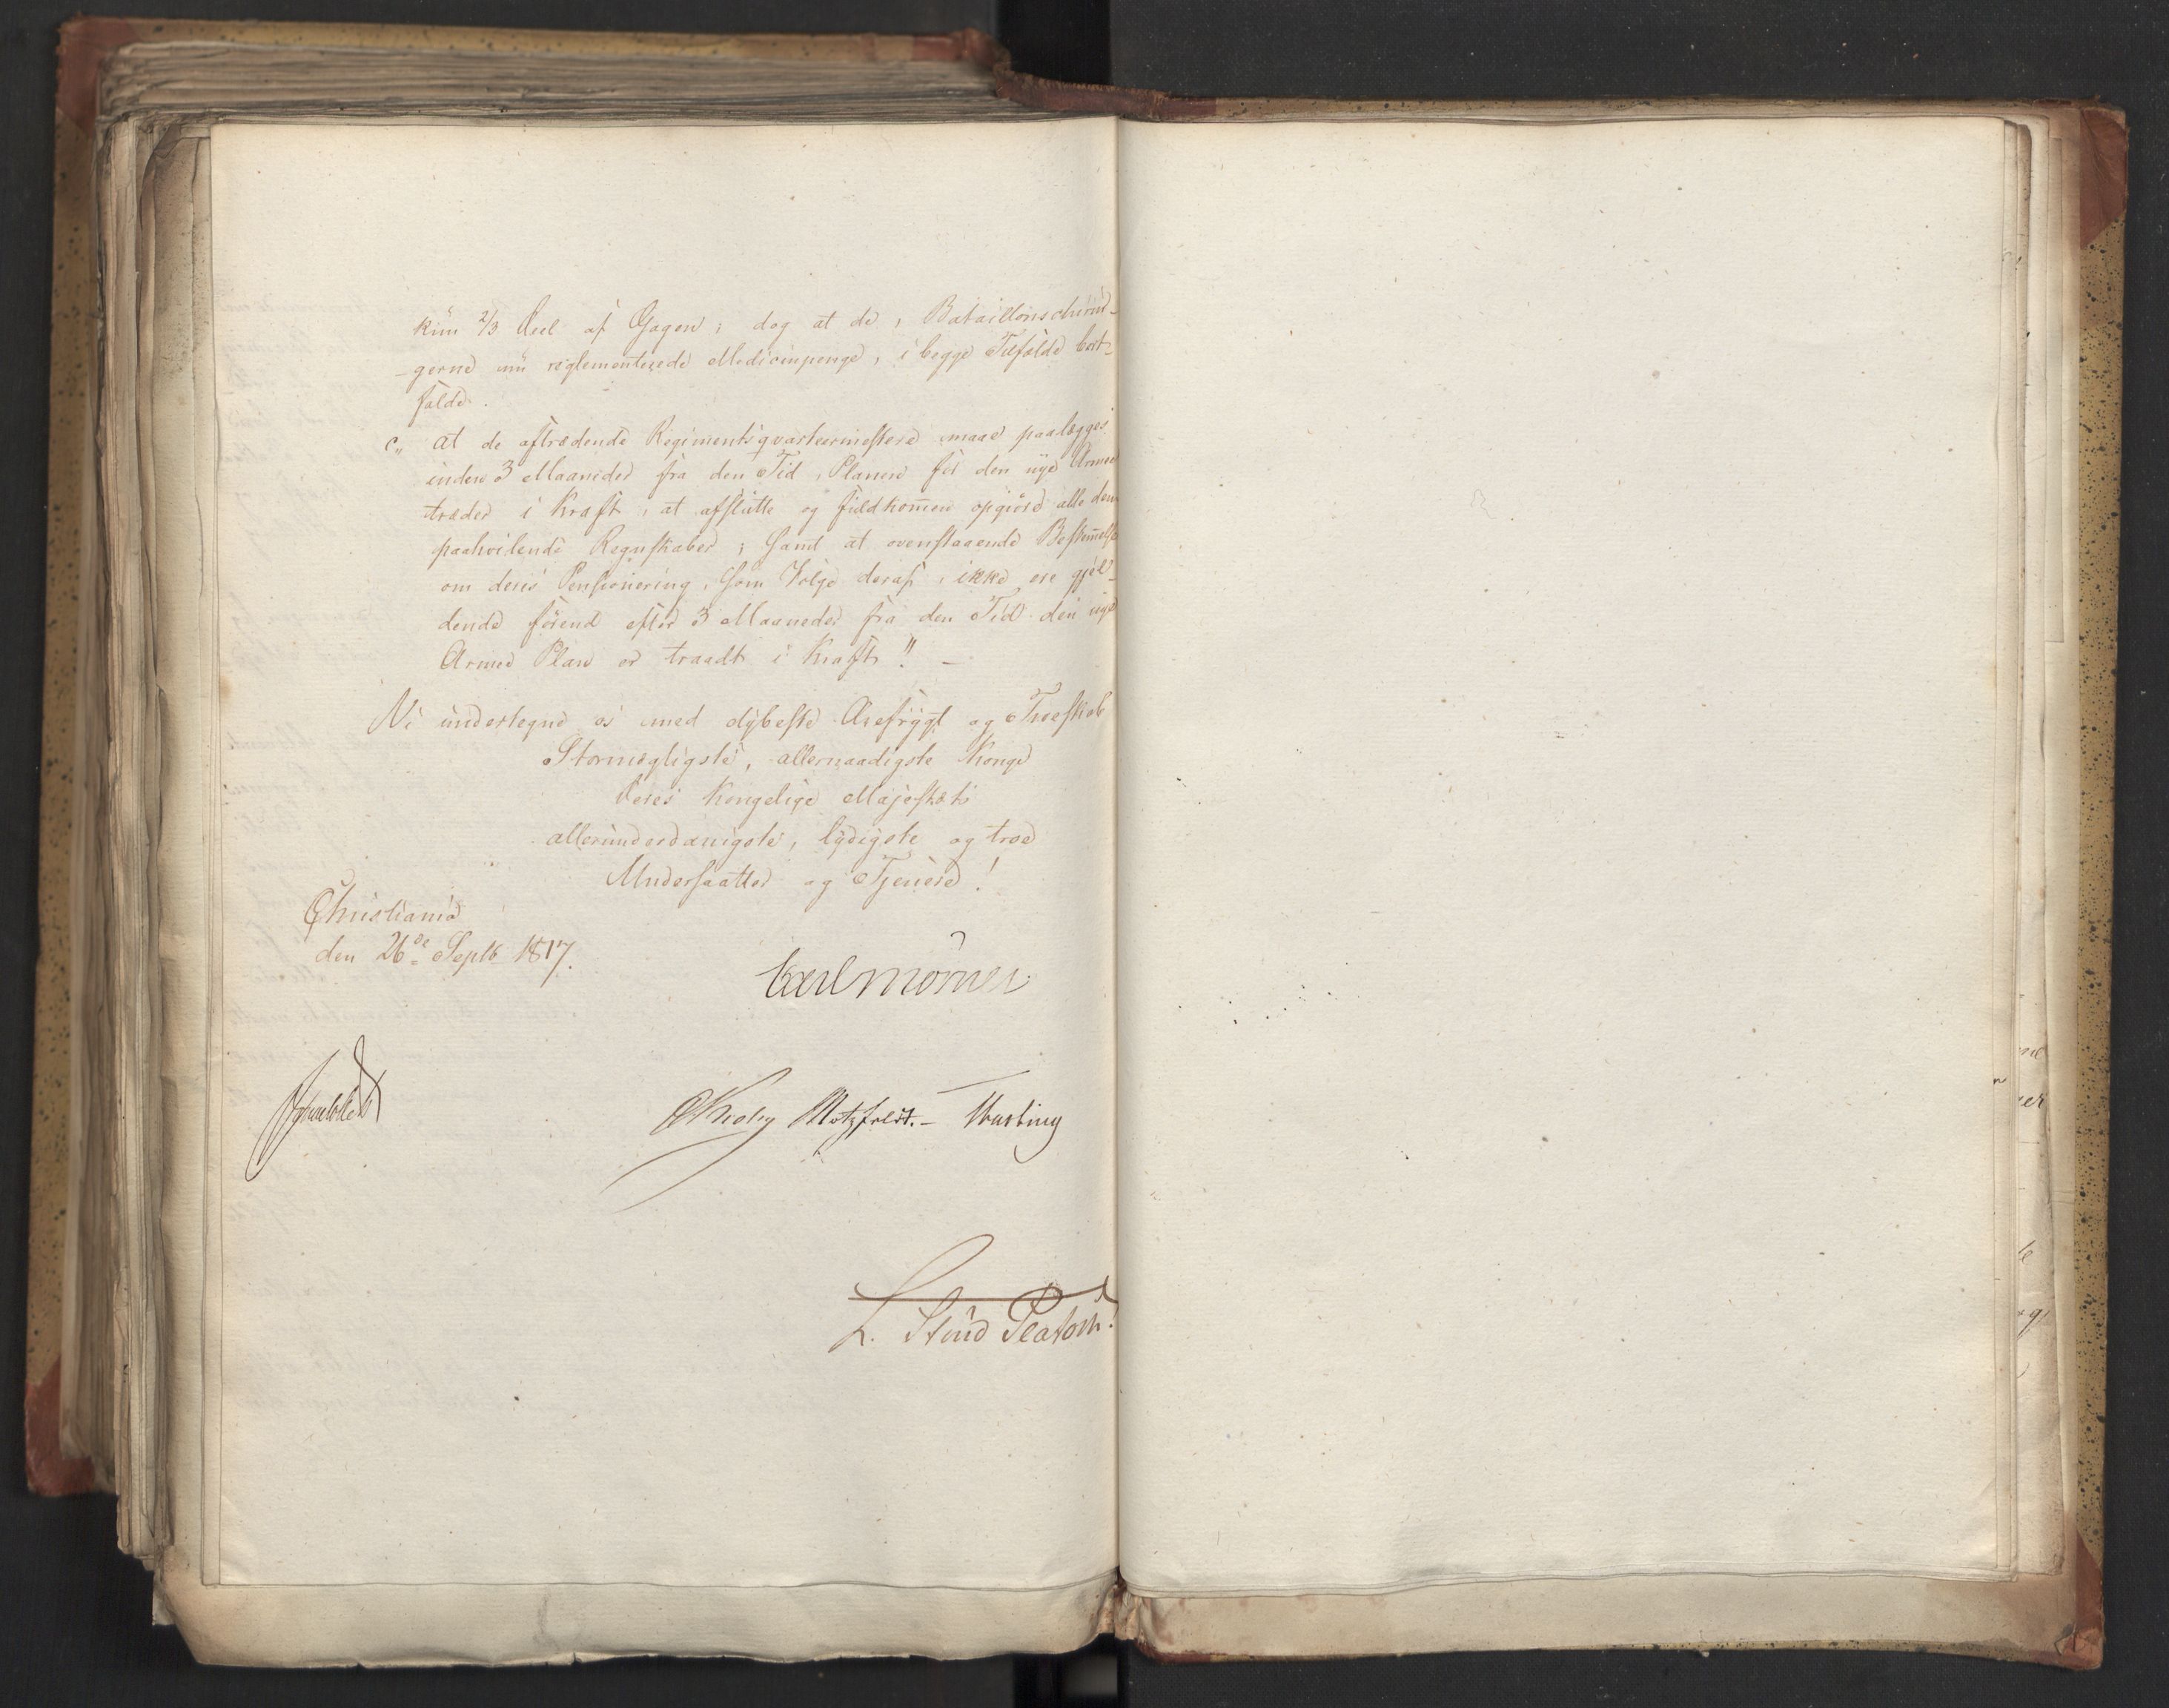 kun 2/3 Deel af Gagen; dog at de, Bataillonschirur-
gerne nu reglementerede Medicinpenge, i begge Tilfælde bort-
falde.
c„ at de aftrædende Regimentsqvarteermestere maae paalægges
inden 3 Maaneder fra den Tid, Planen for den nye Armee
træder i Kraft, at afslutte og fuldkom̅en opgiøre alle dem
paahvilende Regnskaber; samt at ovenstaaende Bestem̅elser
om deres Pensionering, som Følge deraf, ikke ere gjel-
dende førend efter 3 Maaneder fra den Tid den nye
Armee Plan er traadt i Kraft!! —
Vi undertegne os med dybeste Ærefrygt og Troeskab
Stormægtigste, allernaadigste Konge
Deres Kongelige Majestæts
allerunderdanigste, lydigste og troe
Undersaatter og Tjenere!
Christiania
den 26de Septb 1817.
Carl Mörner
Motzfeldt. — Hasting
L. Stoud Platou